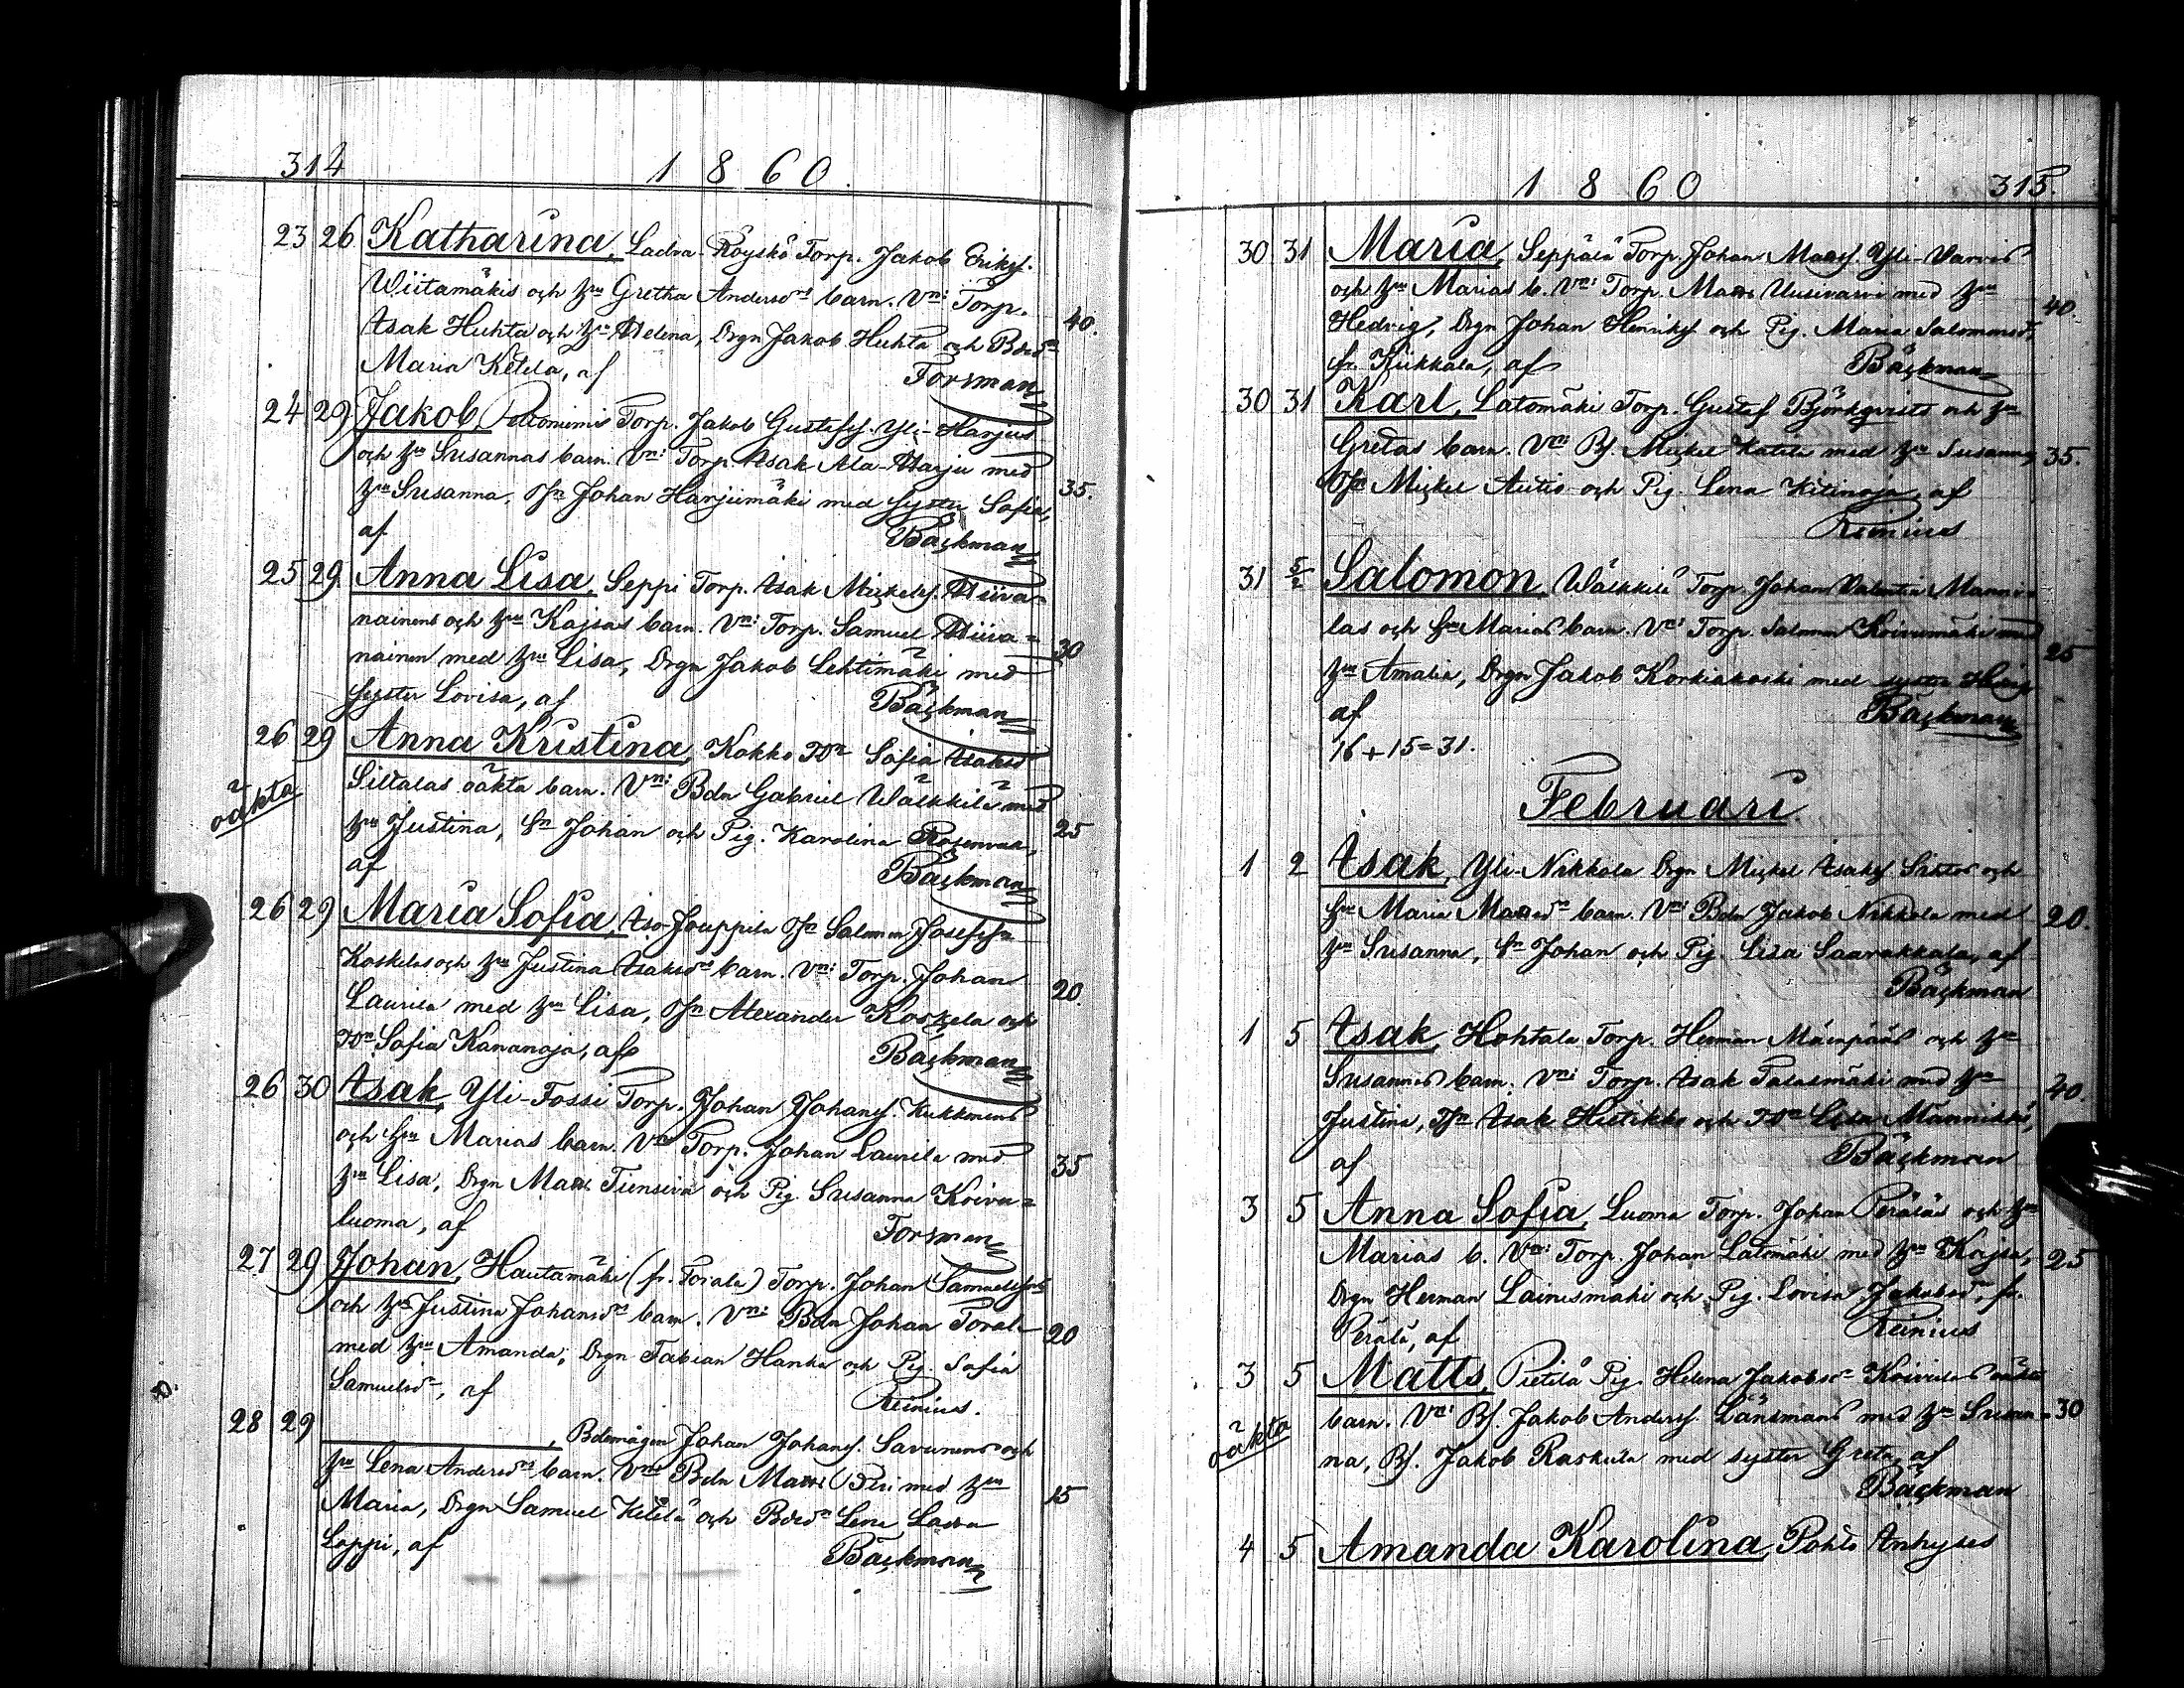 314
1860.
23 26 Katharina, Ladva-Röyskö Torp. Jakob Erikss.
Wiitamäkis och hu Gretha Andersdr barn. Vn: Torp.
Isak Huhta och hu Helena, Drgn Jakob Huhta och Bdr 40.
Maria Ketola, af Forsman
24 29 Jakob, Torp. Jakob Gustafss. Yli-Harjus
och hu Susannas barn. Vn: Torp. Isak Ala-Harju med
hu Susanna, Js Johan Harjumäki med syster Sofia, 35.
af Bäckman
25 29 Anna Lisa, Seppi Torp. Isak Mickelss. Hiiva=
nainens och hu Kajsas barn. Vn: Torp. Samuel Hiiva=
nainen med hu Lisa, Drgn Jakob Lehtimäki med 30
syster Lovisa, af Bäckman
26 29 Anna Kristina, Kokko Sofia Isaksd
oäkta Siltalas oäkta barn. Vn: Bdn Gabriel Wälkkilä med
hu Justina, Sn Johan och Pig. Karolina 25
af Bäckman
26 29 Maria Sofia, Iso-Jouppila Salomon Josefss
Koskelas och hu Justina Isaksdr barn. Vn: Torp. Johan
Laurila med hu Lisa, Alexander Koskela och 20.
Sofia Kananoja, af Bäckman
26 30 Isak, Yli-Fossi Torp. Johan Johanss. Kukkonens
och hu Marias barn. Vn: Torp. Johan Laurila med
hu Lisa, Drgn Matts och Pig. Susanna Koivu= 35
luoma, af Forsman
27 29 Johan, Hautamäki (fr. Torala) Torp. Johan Samuelss
och hu Justina Johansdr barn. Vn: Bdn Johan Torala
med hu Amanda, Drgn Fabian Hanka och Pig. Sofia 20
Samuelsd, af Reinius.
28 29 ———, Bdemågen Johan Johanss. Savunens och
hu Lena Andersdr barn. Vn: Bdn Matts med hu
Maria, Drgn Samuel Ketola och Bdr Lena Ladva 15
Loppi, af Bäckman
1860
315.
30 31 Maria, Seppälä Torp. Johan Matss. Yli-Varvis
och hu Marias b. Vn: Torp. Matts Uusivarvi med hu
Hedvig, Drgn Johan Henrikss och Pig. Maria Salomonsd, 40.
fr. Kiikkala, af Bäckman
30 31 Karl, Latomäki Torp. Gustaf Björkqvists och hu
Gretas barn. Vn: Bs. Mickel Katila med hu Susanna, 35.
Mickel Autio och Pig. Lena Kitinoja, af
Reinius
31 5/2 Salomon, Wälkkilä Torp. Johan Valentin Manni=
las och hu Marias barn. Vn: Torp. Salomon Koivumäki med
hu Amalia, Drgn Jakob Korkiakoski med syster 25
af Bäckman
16+15=31.
Februari.
1 2 Isak, Yli-Nikkola Drgn Mickel Isakss. och
hu Maria Matsdr barn. Vn: Bdn Jakob Nikkola med 20.
hu Susanna, Sn Johan och Pig. Lisa Saarakkala, af
Bäckman
1 5 Isak, Hohtala Torp. Herman Mäenpääs och hu
Susannas barn. Vn: Torp. Isak Talasmäki med hu 40.
Justina, Isak Hietikko och Lisa
af Bäckman
3 5 Anna Sofia, Luoma Torp. Johan Peräläs och hu
Marias b. Vn: Torp. Johan Latomäki med hu Kajsa, 25
Drgn Herman Lainesmäki och Pig. Lovisa Jakobsd, fr.
Perälä, af Reinius
3 5 Matts, Pietilä Pig. Helena Jakobsdr Koivulas oäkta
oäkta barn. Vn: Bs. Jakob Anderss. Länsmans med hu Susan= 30
na, Bs. Jakob Raskula med syster Greta, af
Bäckman
4 5 Amanda Karolina, Pohto